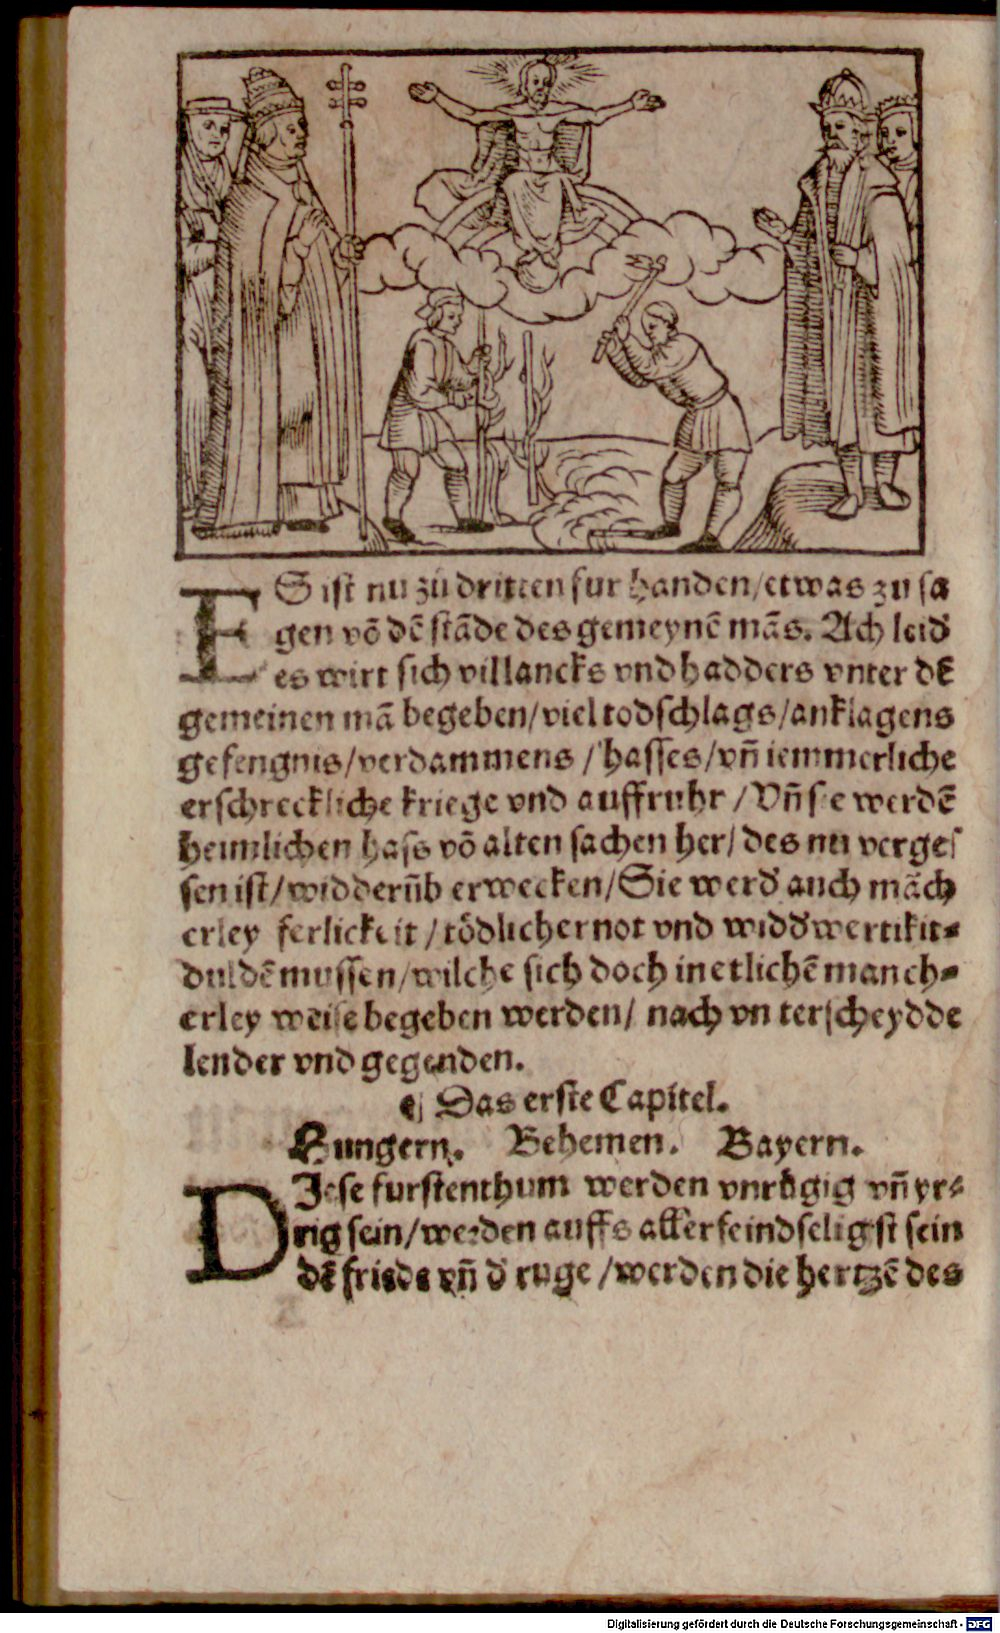 ES ist nu zů dritten fur handen/etwas zu sa
gen võ dẽ stãde des gemeynẽ mãs. Ach leid̃
es wirt sich vil zancks vnd hadders vnter dẽ
gemeinen mã begeben/viel todschlags/anklagens
gefengnis/verdammens /hasses/vñ iemmerliche
erschreckliche kriege vnd auffruhr /Vñ sie werdẽ
heimlichen hass võ alten sachen her/ des nu verges
sen ist/widderũb erwecken/Sie werd̃ auch mãch
erley ferlickeit /tödlicher not vnd widd̃wertikit-
duldẽ mussen/wilche sich doch in etlichẽ manch-
erley weise begeben werden/ nach vnterscheydde
lender vnd gegenden.
¶ Das erste Capitel.
Hungern. Behemen. Bayern.
DIese furstenthum werden vnrůgig vñ yr-
rig sein/werden auffs allerfeindseligst sein
dẽ friede vñ d̃ ruge /werden die hertzẽ des
Digitalisierung gefördert durch die Deutsche Forschungsgemeinschaft - DFG